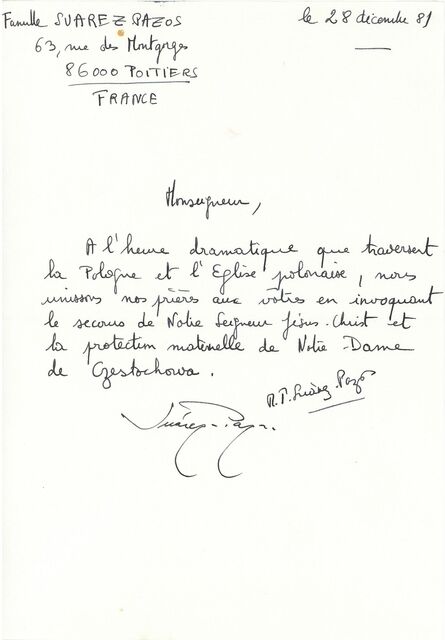 Famille SUAREZ PAZOS
le 28 décembre 81
63, rue des Montgorges
86000 POITIERS
FRANCE
Monseigneur,
A l'heure dramatique que traversent
la Pologne et l'Eglise polonaise, nous
unissons nos prières aux vôtres en invoquant
le secours de Notre Seigneur Jésus-Christ et
la protection maternelle de Notre-Dame
de Częstochowa.
M.T. Suárez-Pazos
Suárez-Pazos